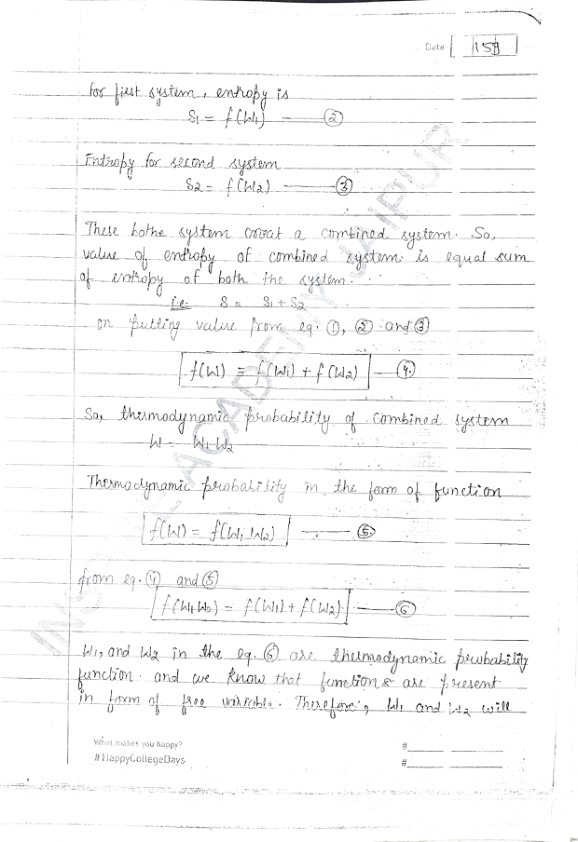 Date 159
for first system, entropy is
S1 = f(W1) — ②
Entropy for second system
S2 = f(W2) — ③
These bothe system creat a combined system. So,
value of entropy of combined system is equal sum
of entropy of both the system.
i.e. S = S1 + S2
on putting value from eq. ①, ② and ③
f(W) = f(W1) + f(W2) — ④
So, thermodynamic probability of combined system
W = W1 W2
Thermodynamic probability in the form of function
f(W) = f(W1 W2) — ⑤
from eq. ④ and ⑤
f(W1 W2) = f(W1) + f(W2) — ⑥
W1, and W2 in the eq. ⑥ are thermodynamic probability
function. and we know that functions are present
in form of free variable. Therefore, W1 and W2 will
What makes you happy? #
#HappyCollegeDays #
ACADEMY JAIPUR